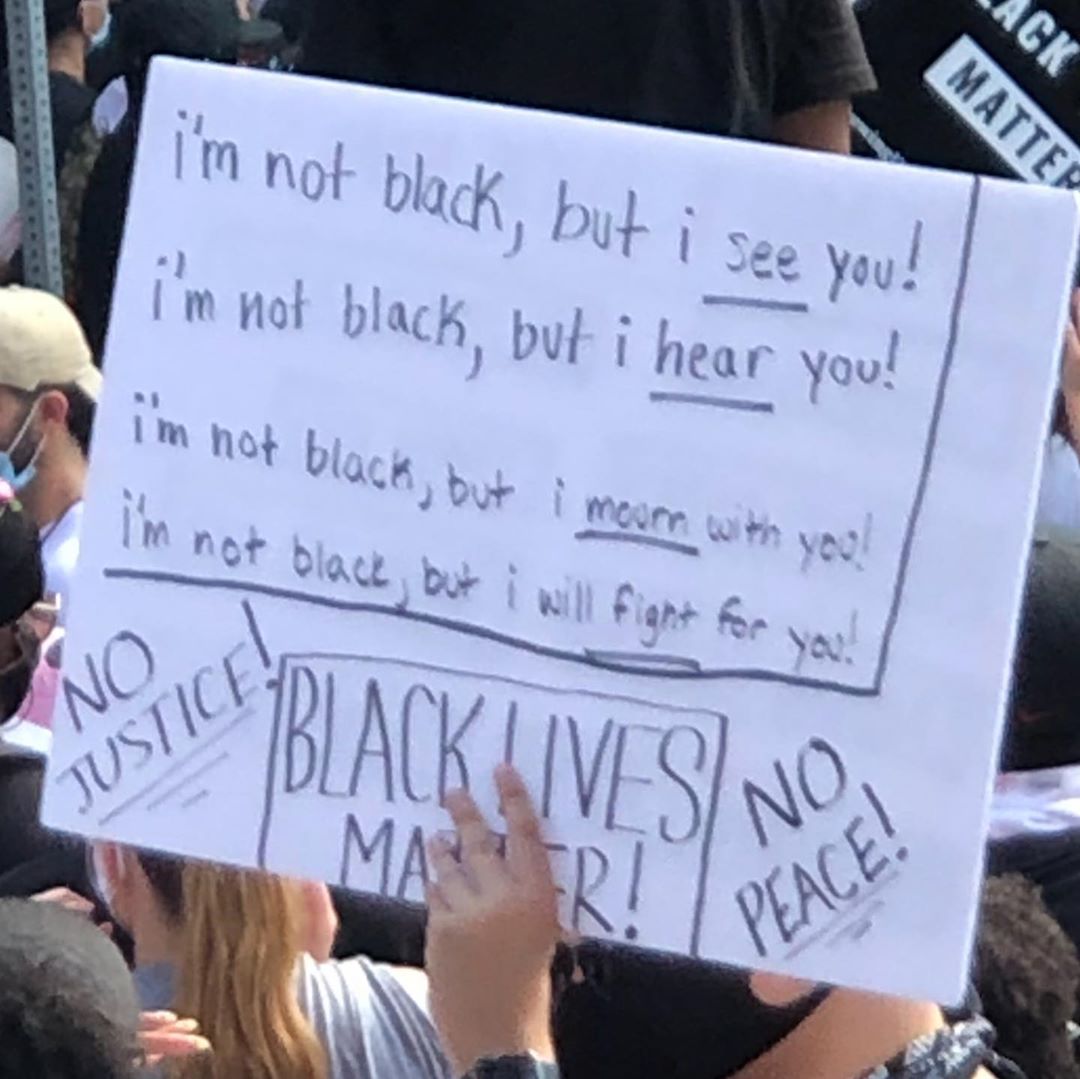 i'm not black, but i see you!
i'm not black, but i hear you!
i'm not black, but i mourn with you!
i'm not black, but i will fight for you!
NO
JUSTICE!
BLACK LIVES
MATTER!
NO
PEACE!
LACK
MATTER